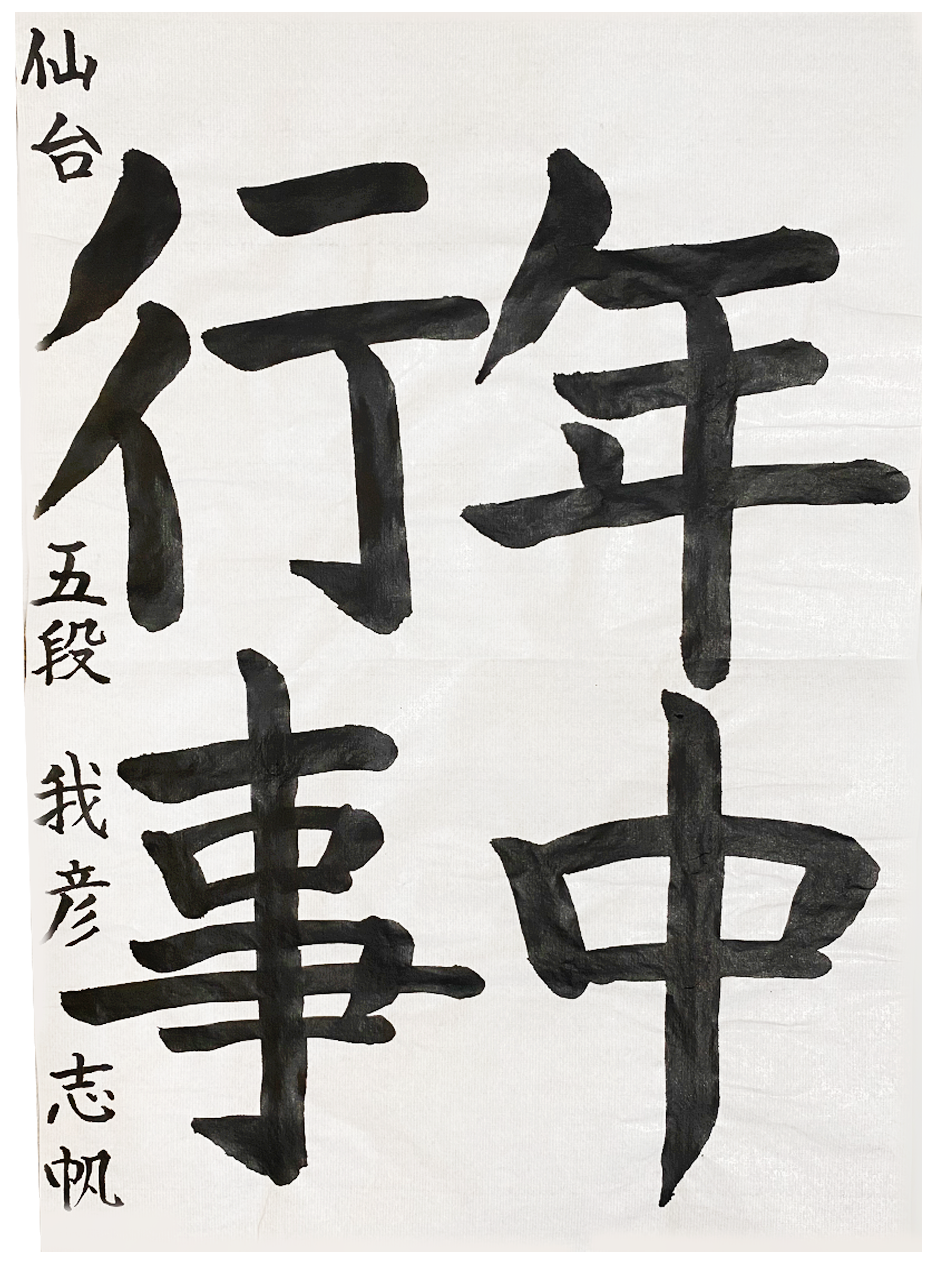 年中
行事
仙台 五段 我彦 志帆